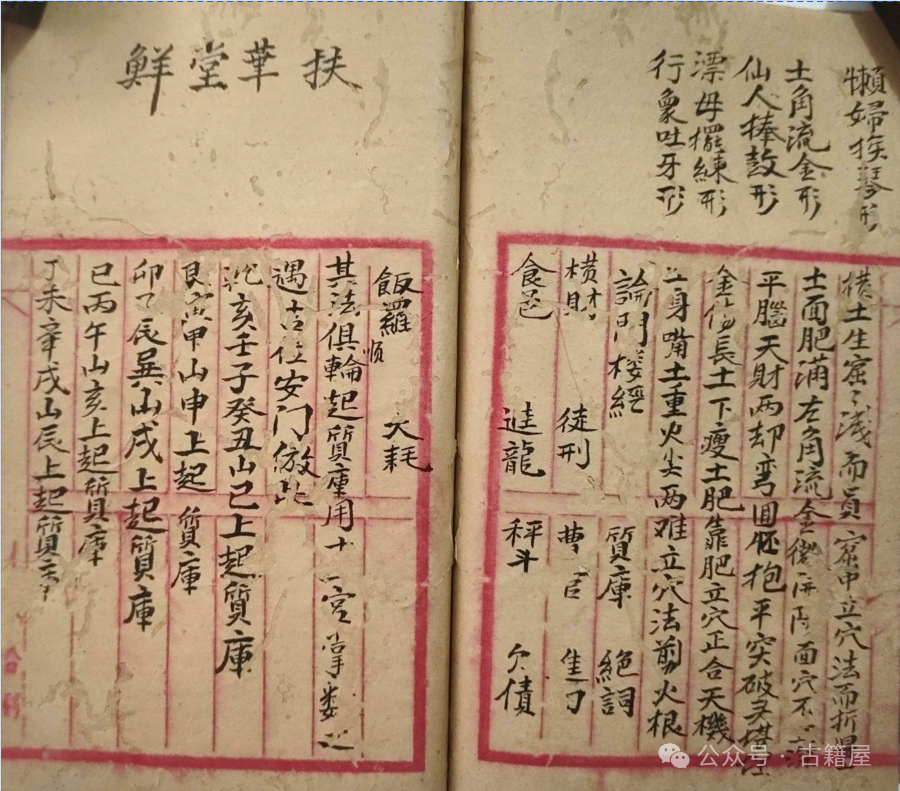 懶婦挨琴形
土角流金形
仙人捧鼓形
漂母擺練形
行象吐牙形
橫土生窟〻淺而員窟中立穴法而折
土面肥滿左角流金後屏面穴不
平腦天財兩却彎回胚抱平突破天
金傷長土下瘦土肥靠肥立穴正合天機
立身嘴土重火尖两难立穴法剪火根
論門楼經 質庫 絕詞
橫財 徒刑 曹官 隹刀
食邑 進龍 秤斗 欠債
扶華堂鮮
飯羅順 大耗
其法俱輪起質庫用十二宮掌娄
遇吉位安门倣此
乾亥壬子癸丑山巳上起質庫
艮寅甲山申上起質庫
卯乙辰巽山戌上起質庫
巳丙午山亥上起質庫
丁未辛戌山辰上起質
合利
公众号·古籍屋